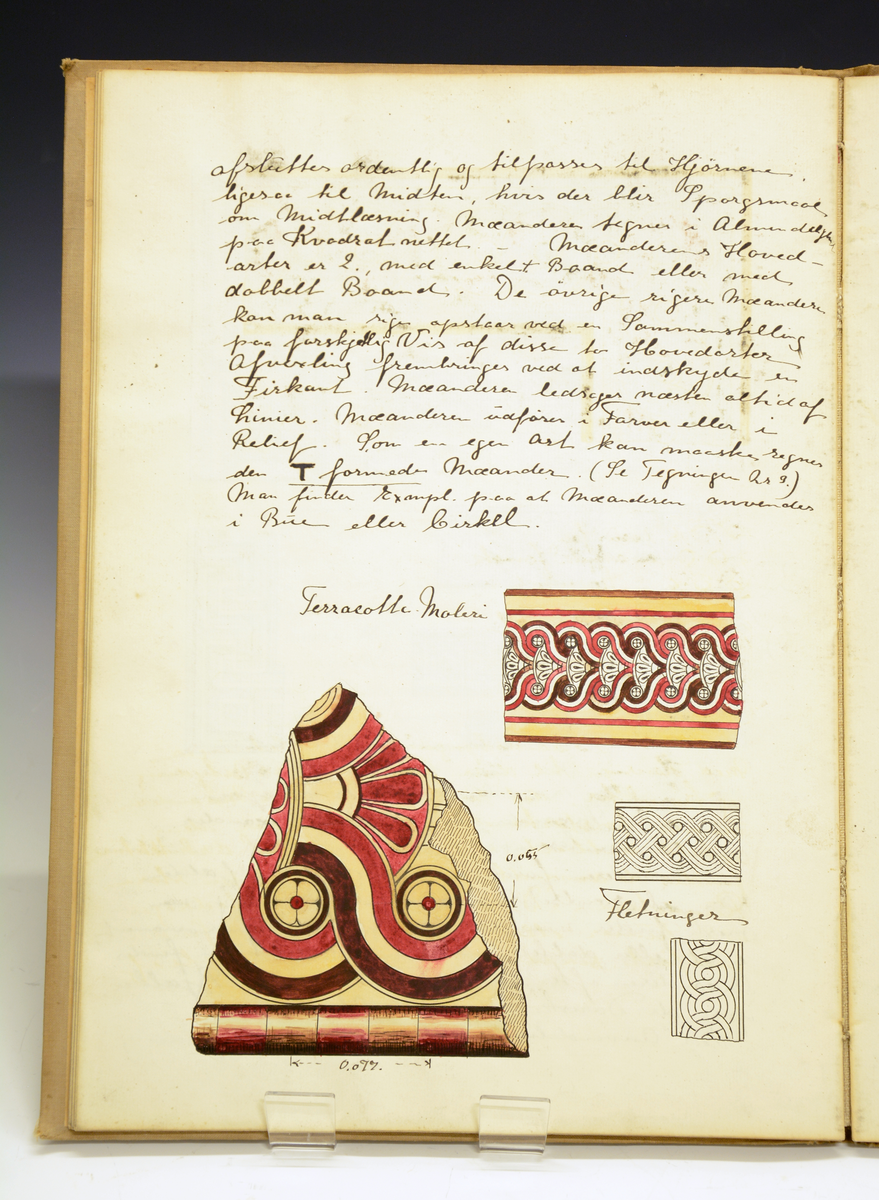 afsluttes ordentlig og tilpasses til Hjörnene,
ligesaa til Midten, hvis der blir Spørgsmaal
om Midtløsning. Mæanderen tegnes i Almindelighed
paa Kvadratnettet. — Mæanderens Hoved-
arter er 2., med enkelt Baand eller med
dobbelt Baand. De övrige rigere Mæandere
kan man sige opstaar ved en Sammenstilling
paa forskjellig Vis af disse to Hovedarter
Afvexling frembringes ved at indskyde en
Firkant. Mæanderen ledsages næsten altid af
Linier. Mæanderen udføres i Farver eller i
Relief. Som en egen Art kan maaske regnes
den T formede Mæander. (Se Tegningen
Man finder Exempl. paa at Mæanderen anvendes
i Bue eller Cirkel.
Terracotta-Maleri
0.055
Fletninger
0.077.